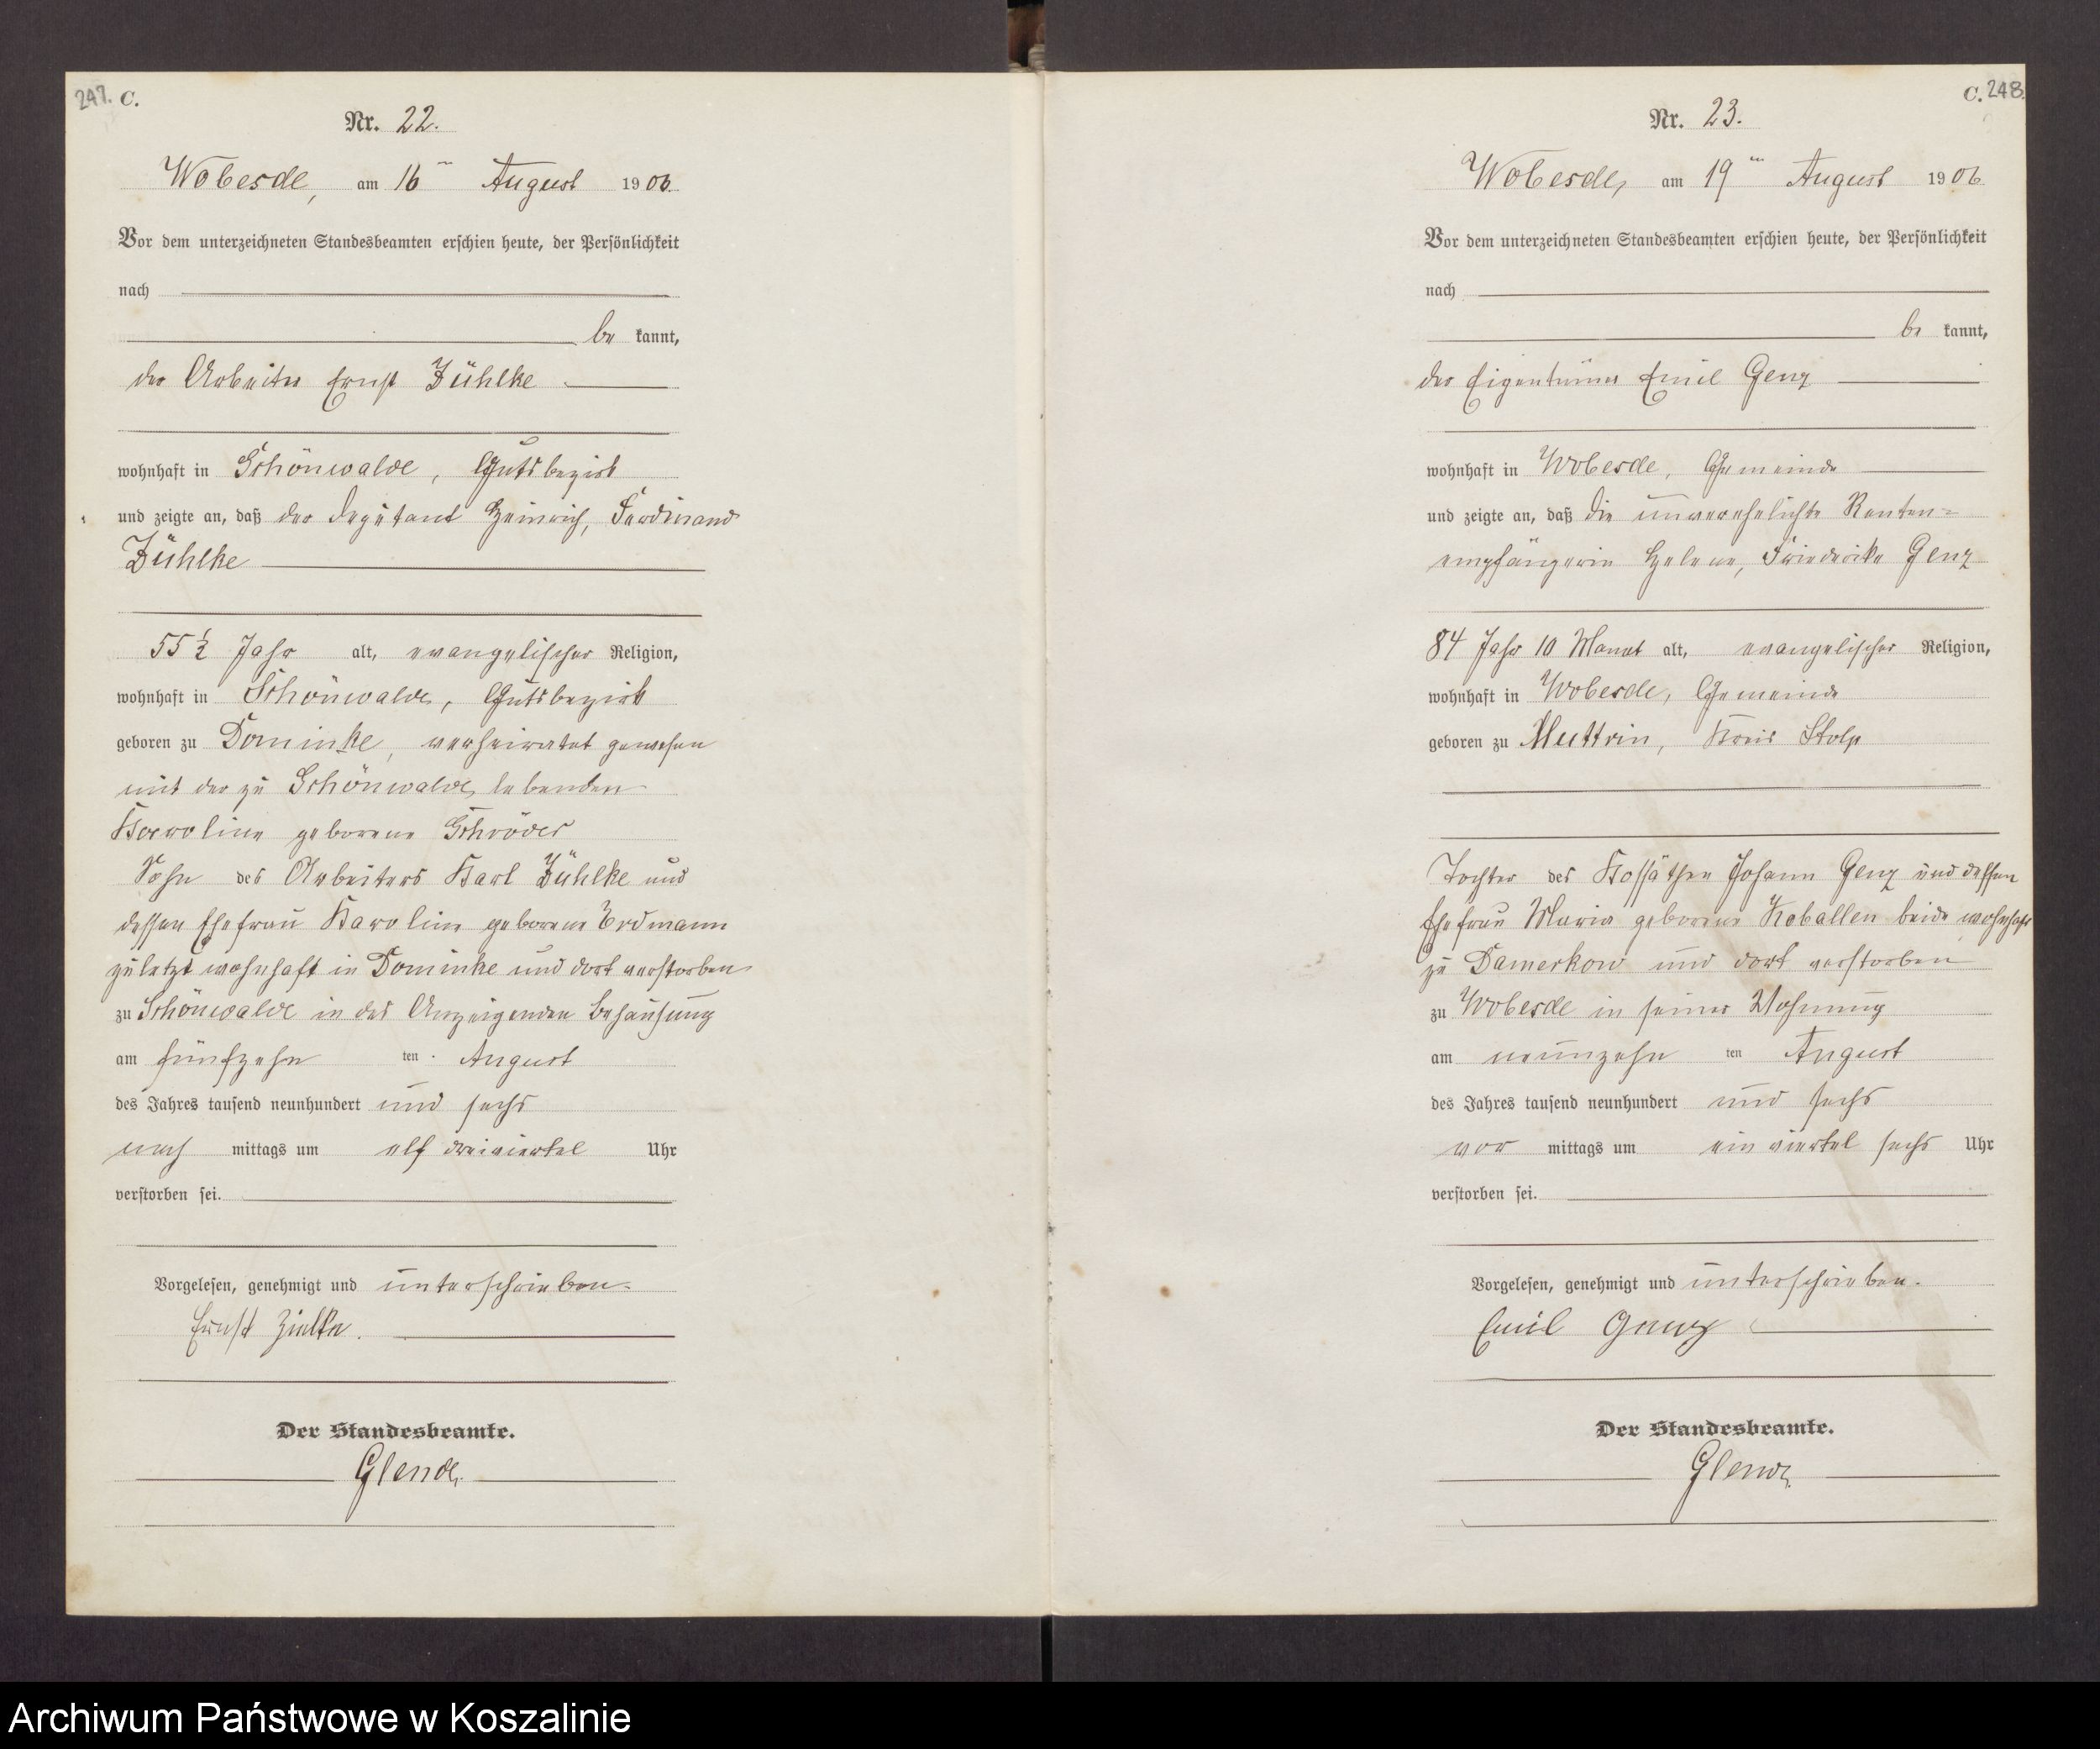 247. C.
Nr. 22.
Wobesde, am 16ten August 1906.
Vor dem unterzeichneten Standesbeamten erschien heute, der Persönlichkeit
nach
be kannt,
der Arbeiter Ernst Zühlke
wohnhaft in Schönwalde, Gutsbezirk
und zeigte an, daß der Deputant Heinrich, Ferdinand
Zühlke
55 ½ Jahr alt, evangelischer Religion,
wohnhaft in Schönwalde, Gutsbezirk
geboren zu Dominke, verheiratet gewesen
mit der zu Schönwalde lebenden
Karoline geborene Schröder
Sohn des Arbeiters Karl Zühlke und
dessen Ehefrau Karoline geborene Erdmann
zuletzt wohnhaft in Dominke und dort verstorben
zu Schönwalde in des Anzeigenden Behausung
am fünfzehn ten August
des Jahres tausend neunhundert und sechs
nach mittags um elf dreiviertel Uhr
verstorben sei.
Vorgelesen, genehmigt und unterschrieben.
Ernst Zielke.
Der Standesbeamte.
Glende.
C. 248.
Nr. 23.
Wobesde, am 19ten August 1906
Vor dem unterzeichneten Standesbeamten erschien heute, der Persönlichkeit
nach
be kannt,
der Eigentümer Emil Genz
wohnhaft in Wobesde, Gemeinde
und zeigte an, daß die unverehelichte Renten=
empfängerin Helene, Friederike Genz
84 Jahr 10 Monat alt, evangelischer Religion,
wohnhaft in Wobesde, Gemeinde
geboren zu Muttrin, Kreis Stolp
Tochter des Kossäthen Johann Genz und dessen
Ehefrau Maria geborene Koballen beide wohnhaft
zu Damerkow und dort verstorben
zu Wobesde in seiner Wohnung
am neunzehn ten August
des Jahres tausend neunhundert und sechs
vor mittags um ein viertel sechs Uhr
verstorben sei.
Vorgelesen, genehmigt und unterschrieben.
Emil Genz
Der Standesbeamte.
Glende.
Archiwum Państwowe w Koszalinie